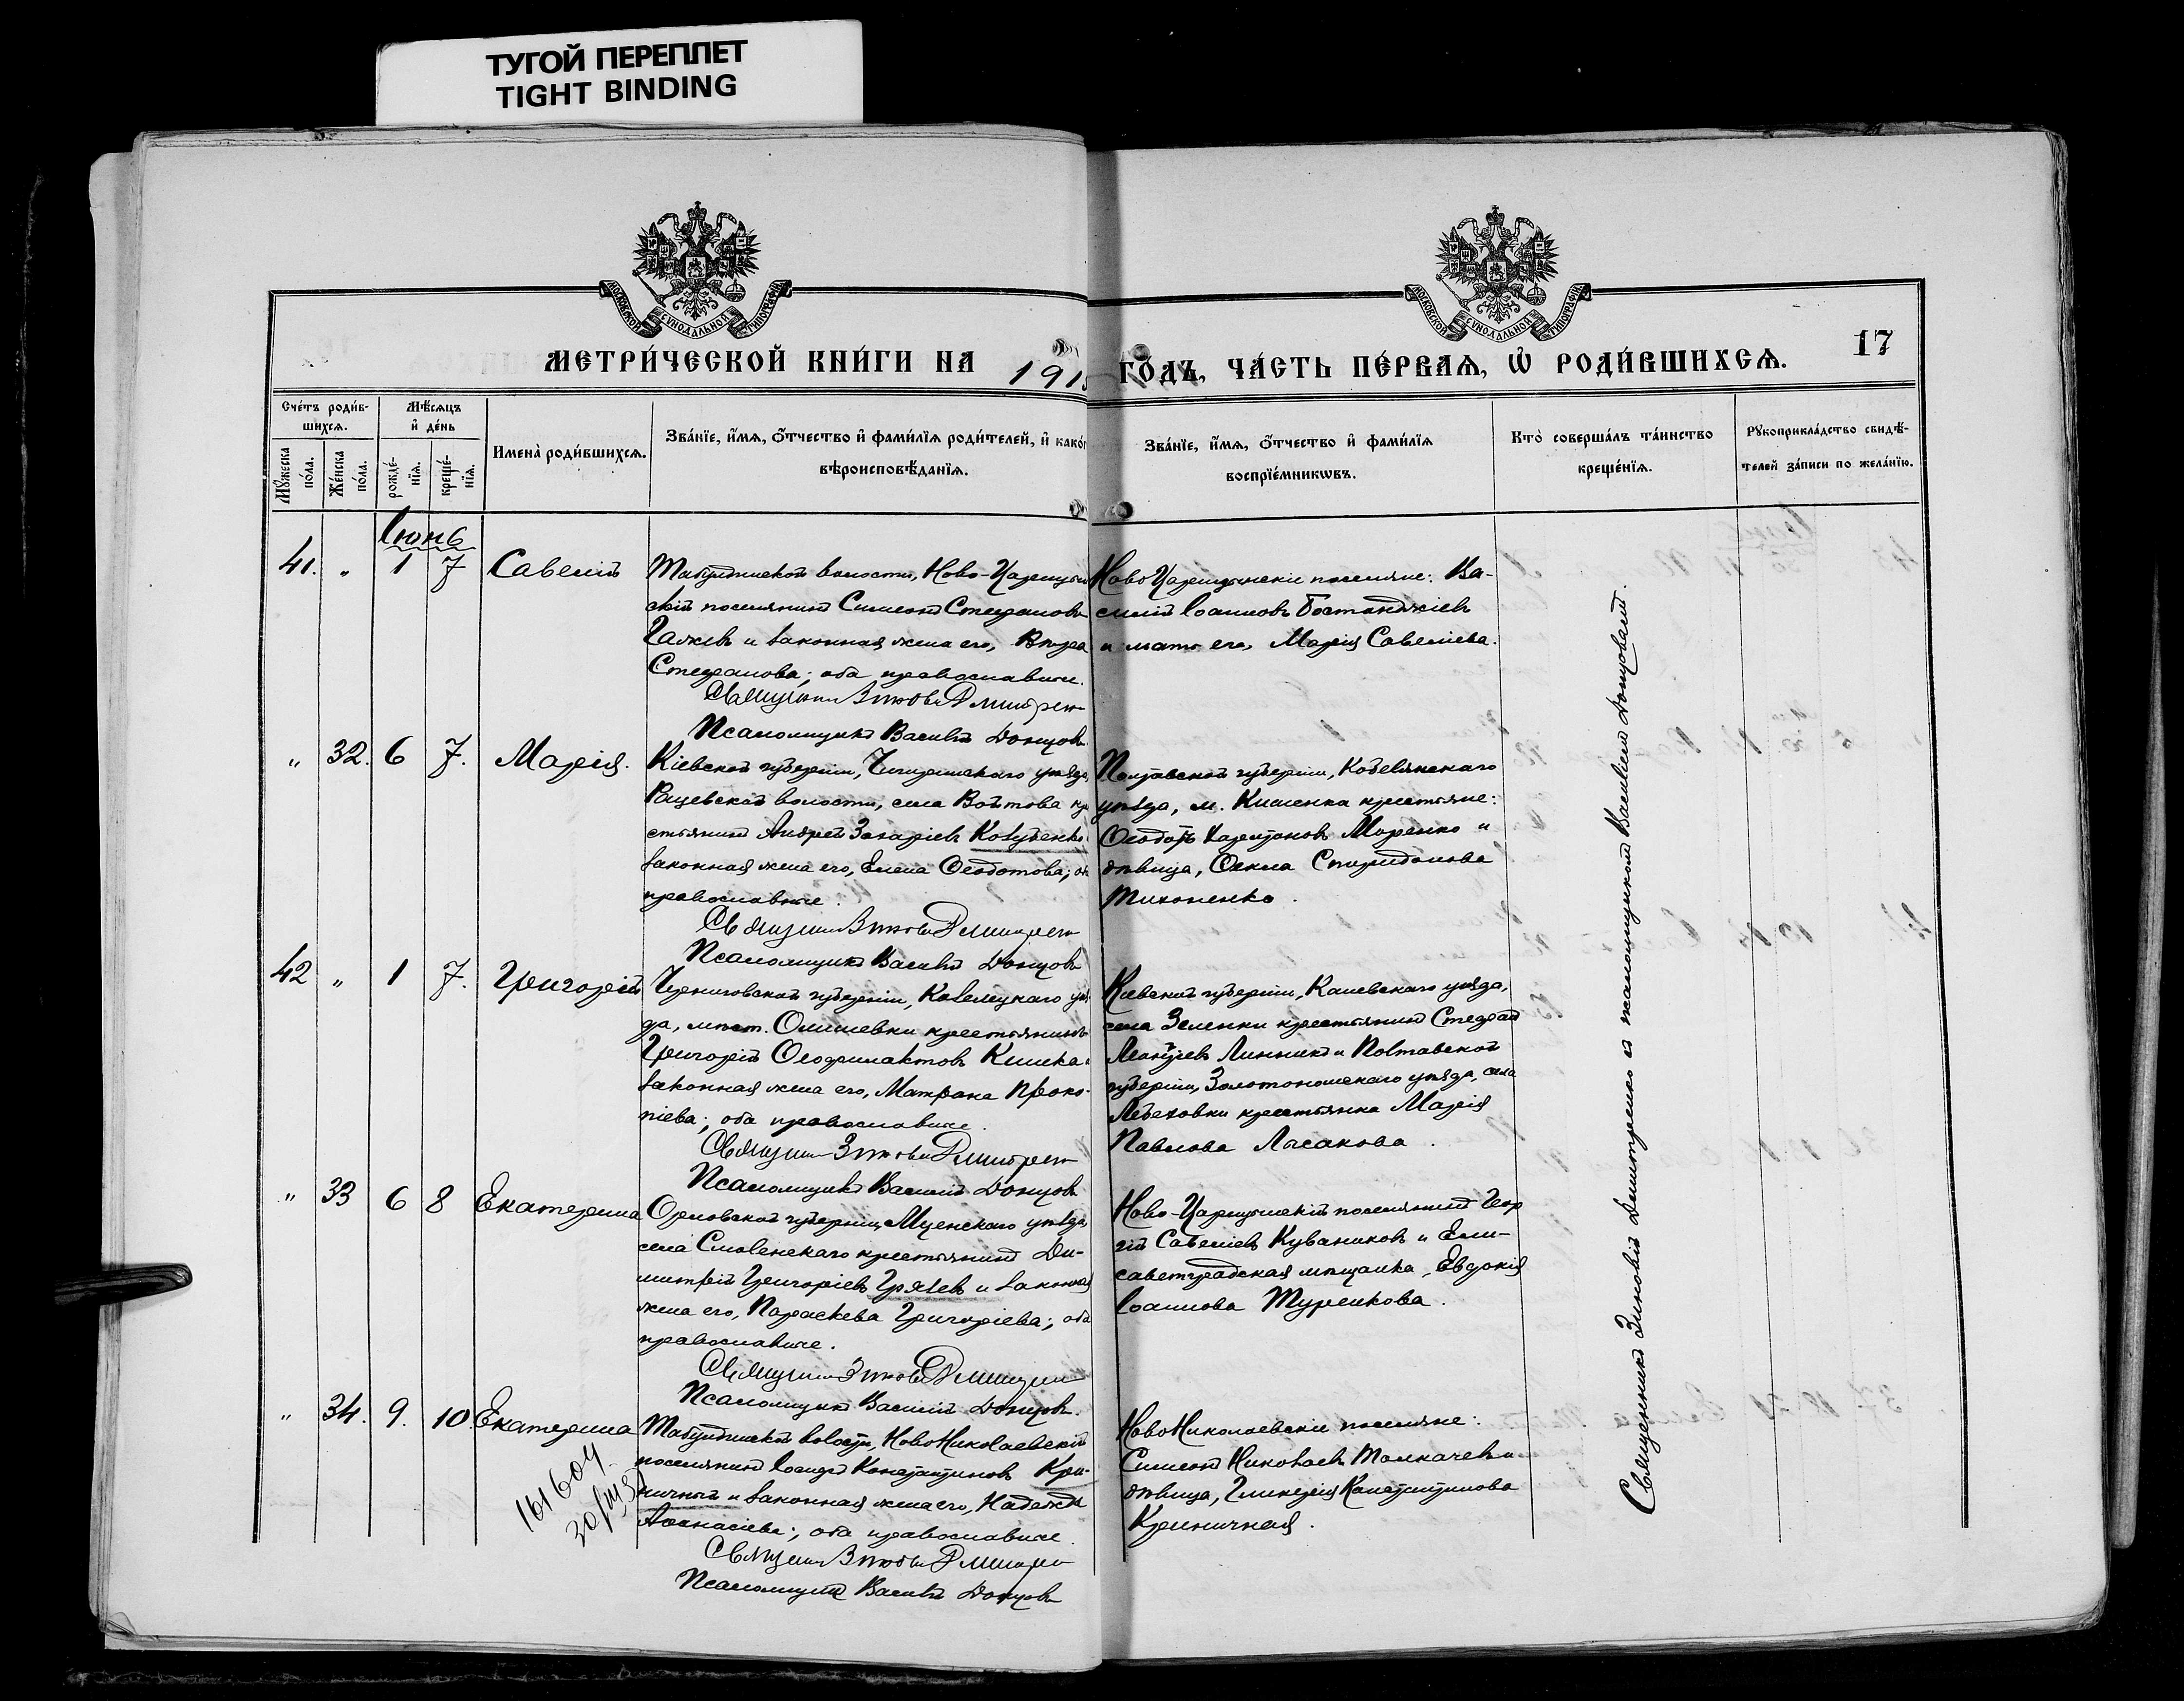 ТУГОЙ ПЕРЕПЛЕТ
TIGHT BINDING
МОСКОВСКОЙ СѴНОДАЛЬНОЙ ТИПОГРАФІИ
МОСКОВСКОЙ СѴНОДАЛЬНОЙ ТИПОГРАФІИ
МЕТРИ́ЧЕСКОЙ КНИ́ГИ НА 191
ГО́ДЪ, ЧА́СТЬ ПЕ́РВАЯ, Ѡ҆ РОДИ́ВШИХСЯ.
17
Сче́тъ роди́в-
шихся.
Мѣ́сяцъ
и҆ де́нь
Мꙋ́жеска по́ла.
Же́нска по́ла.
рожде́-
нїя.
креще́-
нїя.
И҆мена̀ роди́вшихся.
Зва́нїе, и҆́мя, ѻ҆́тчество и҆ фами́лїя роди́телей, и҆ како́г
вѣроисповѣ́данїя.
Зва́нїе, и҆́мя, ѻ҆́тчество и҆ фами́лїя
воспрїе́мникѡвъ.
Кто̀ соверша́лъ та́инство
креще́нїя.
Рꙋкоприкла́дство свидѣ́-
телей за́писи по жела́нїю.
Іюнь
41. „ 1 7 Савелій
Табулдинской волости, Ново-Царицын
скій поселянинъ Симеонъ Стефановъ
и законная жена его, Вѣра
Стефанова; оба православные.
Священникъ Зиновій Дмитренко
Псаломщикъ Василій Донцовъ
Ново Царицынскіе поселяне: Ва-
силій Іоанновъ Бостанджіевъ
и мать его, Марія Савеліева.
„ 32. 6 7. Марія.
Кіевской губерніи, Чигиринскаго уѣзда,
Рацевской волости, села Войтова кр
стьянинъ Андрей Захаріевъ Козубенко
законная жена его, Елена Ѳеодотова; об
православные.
Священникъ Зиновій Дмитренко
Псаломщикъ Василій Донцовъ
Полтавской губерніи, Кобелянскаго
уѣзда, м. Кишенка крестьяне:
Ѳеодотъ Харитоновъ Моренко и
дѣвица, Ѳекла Спиридонова
Тихоненко.
42 „ 1 7. Григорій
Черниговской губерніи, Козелецкаго уѣз
да, мѣст. Олишевки крестьянинъ
Григорій Ѳеофилактовъ Кишка и
законная жена его, Матрона Проко-
піева; оба православные.
Священникъ Зиновій Дмитренко
Псаломщикъ Василій Донцовъ
Кіевской губерніи, Каневскаго уѣзда,
села Зеленки крестьянинъ Стефанъ
Леонтіевъ Линникъ и Полтавской
губерніи, Золотоношскаго уѣзда, села
Лебеховки крестьянка Марія
Павлова Лысакова.
„ 33 6 8 Екатерина
Орловской губерніи, Мценскаго уѣзда,
села Смоленскаго крестьянинъ Ди-
митрій Григоріевъ Грязевъ и законная
жена его, Параскева Григоріева; оба
православные.
Священникъ Зиновій Дмитренко
Псаломщикъ Василій Донцовъ.
Ново-Царицынскій поселянинъ Геор
гій Савеліевъ Куванниковъ и Ели-
саветградская мѣщанка, Евдокія
Іоаннова Туренкова.
„ 34. 9. 10. Екатерина
161604
Табулдинской волости, Ново Николаевскій
поселянинъ Іосифъ Константиновъ Кри-
ничный и законная жена его, Надежда
Аѳанасіева; оба православные.
Священникъ Зиновій Дмитренко
Псаломщикъ Василій Донцовъ
Ново Николаевскіе поселяне:
Симеонъ Николаевъ Толмачевъ и
дѣвица, Гликерія Константинова
Криничная.
Священникъ Зиновій Дмитренко съ псаломщикомъ Василіемъ Донцовымъ.